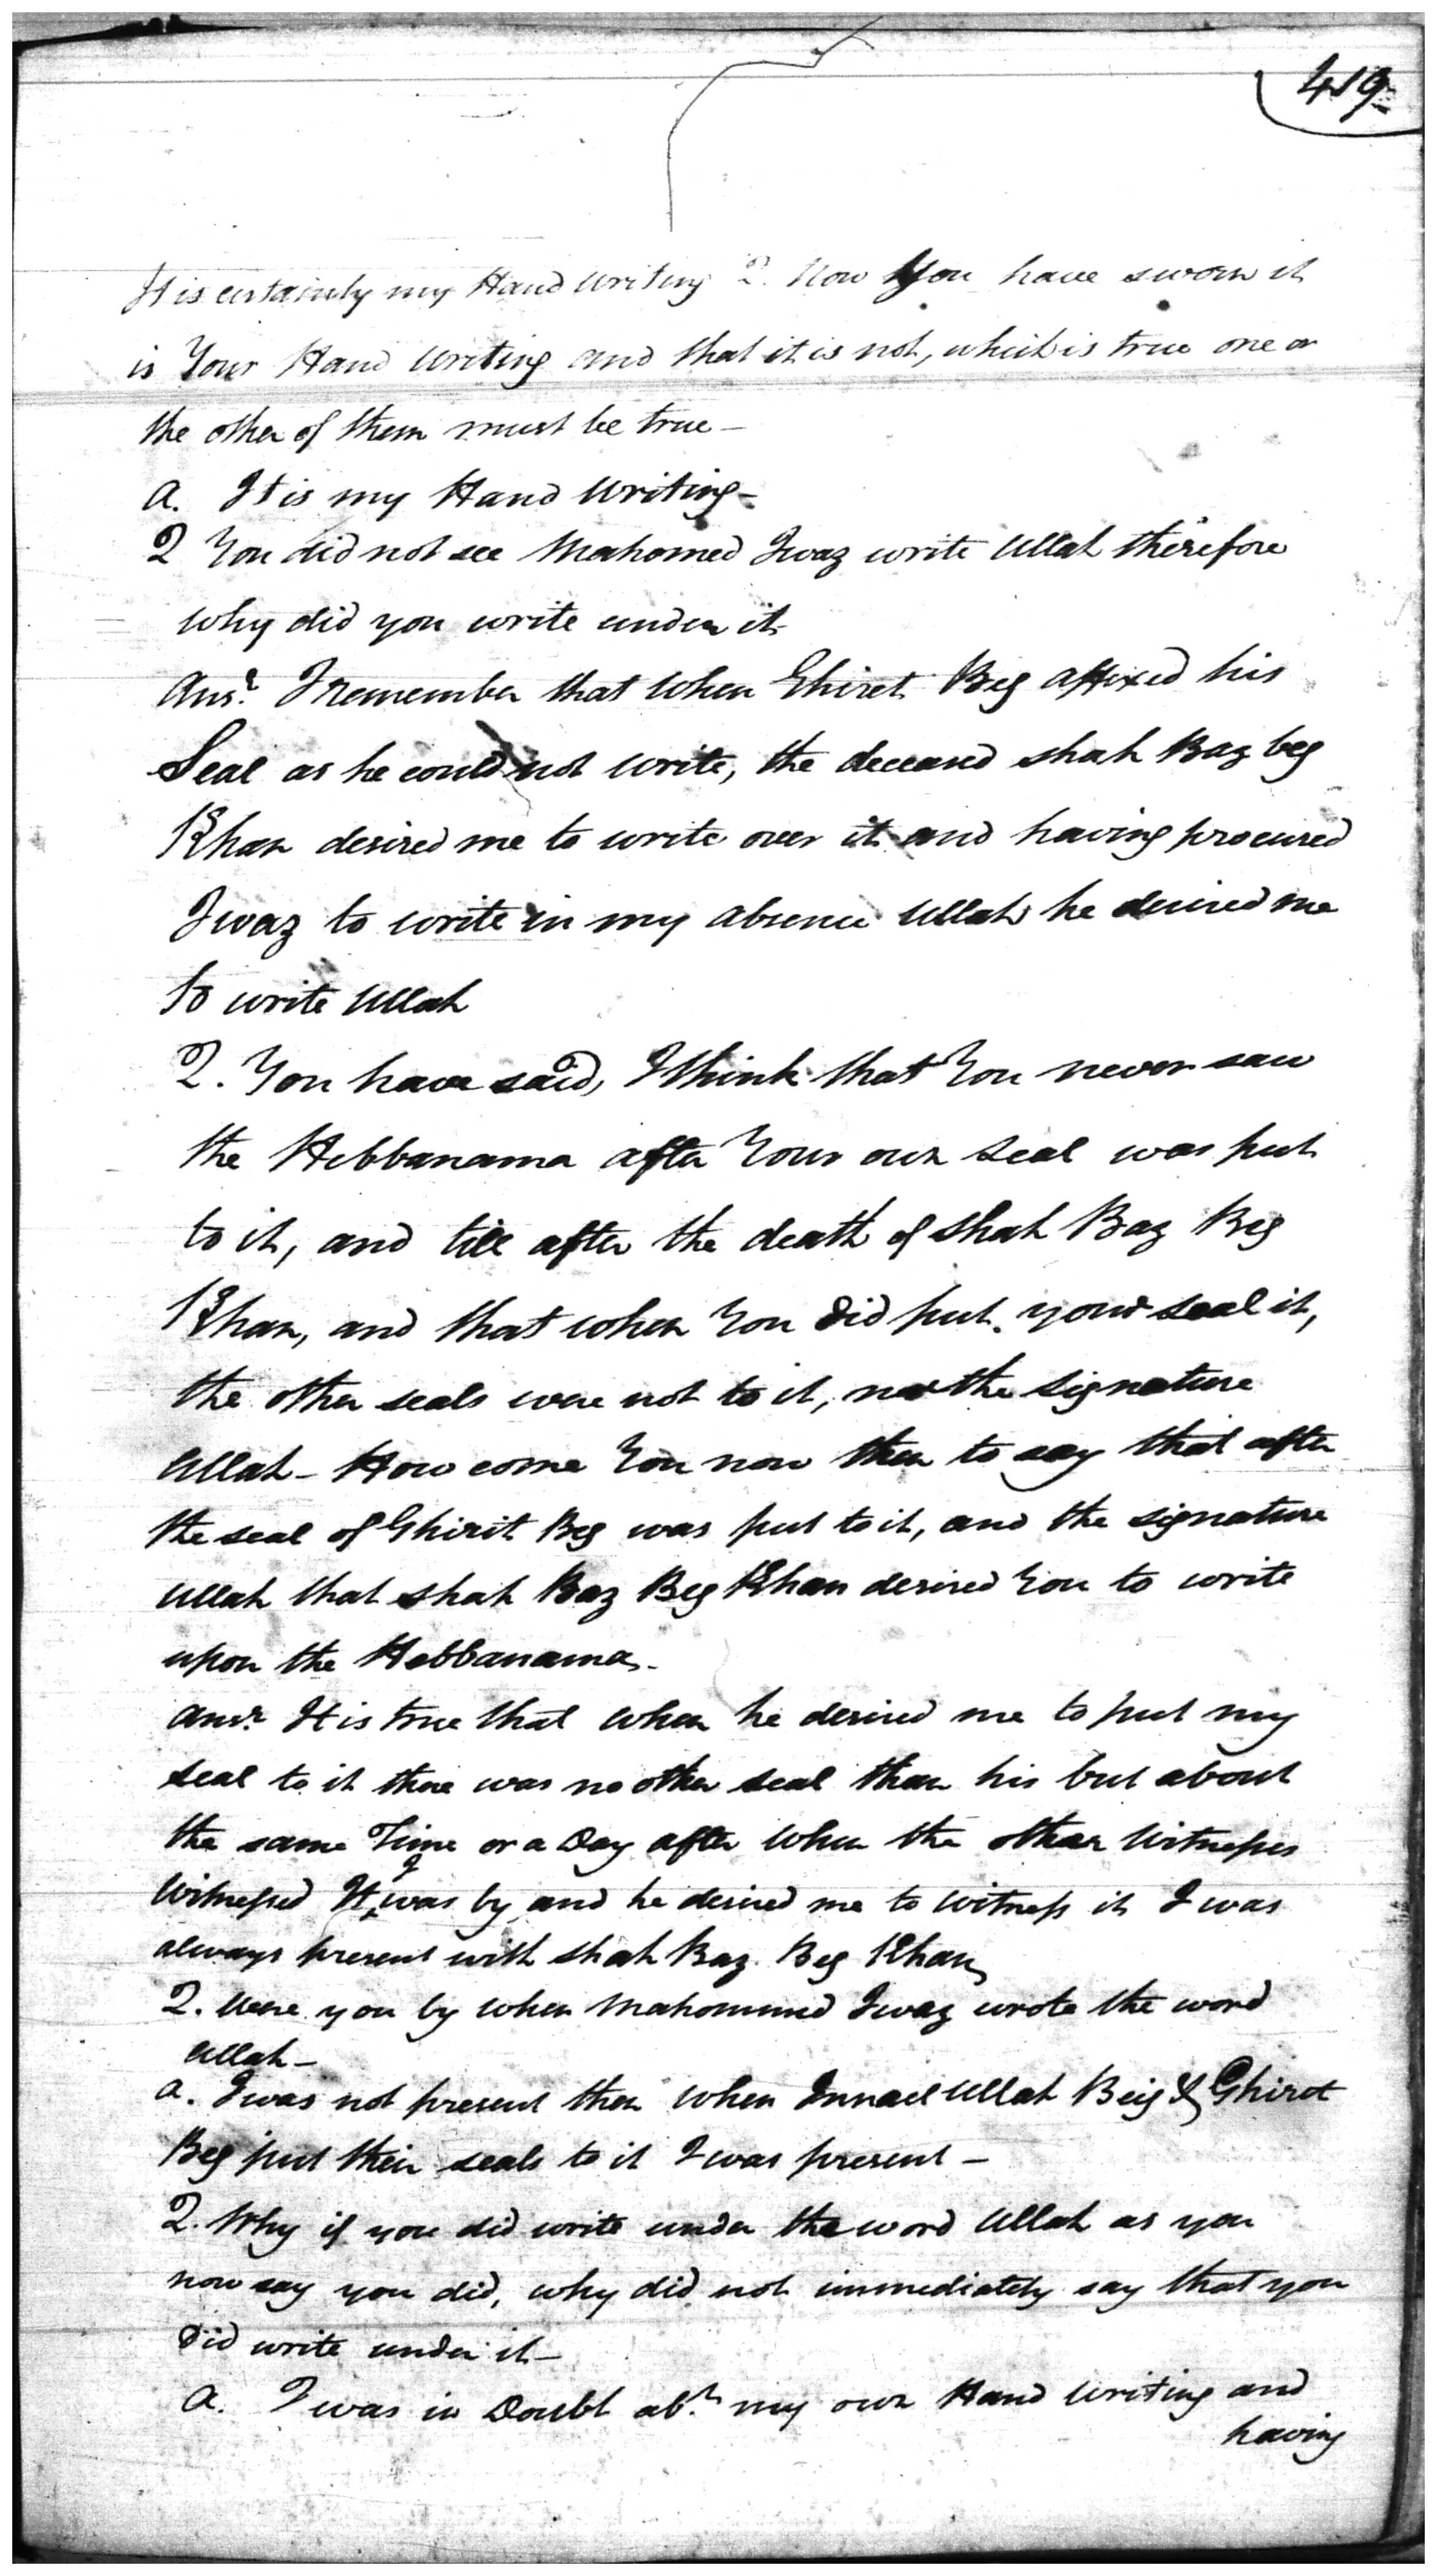 419
It is certainly my Hand Writing Q. Now You have sworn it
is Your Hand Writing and that it is not, which is true one or
the other of them must be true —
A. It is my Hand Writing —
Q You did not see Mahomed Iwaz write Ullah therefore
why did you write under it
Ansr. I remember that when Ghiret Beg affixed his
Seal as he could not write, the deceased Shah Baz beg
Khan desired me to write over it and having procured
Iwaz to write in my absence Ullah he desired me
to write Ullah
Q. You have said, I think that You never saw
the Hebbanama after Your own seal was put
to it, and till after the death of Shah Baz Beg
Khan, and that when You did put your seal it,
the other seals were not to it, nor the signature
Ullah — How come You now then to say that after
the seal of Ghirit Beg was put to it, and the signature
Ullah that Shah Baz Beg Khan desired You to write
upon the Hebbanama —
Ansr. It is true that when he desired me to put my
seal to it there was no other seal than his but about
the same Time or a Day after when the other Witnesses
Witnessed It I was by and he desired me to witness it I was
always present with Shah Baz Beg Khan
Q. Were you by when Mahommed Iwaz wrote the word
Ullah —
A. I was not present then when Ullah Beig & Ghiret
Beg put their seals to it I was present —
Q. Why if you did write under the word Ullah as you
now say you did, why did not immediately say that you
did write under it —
A. I was in Doubt abt. my own Hand Writing and
having